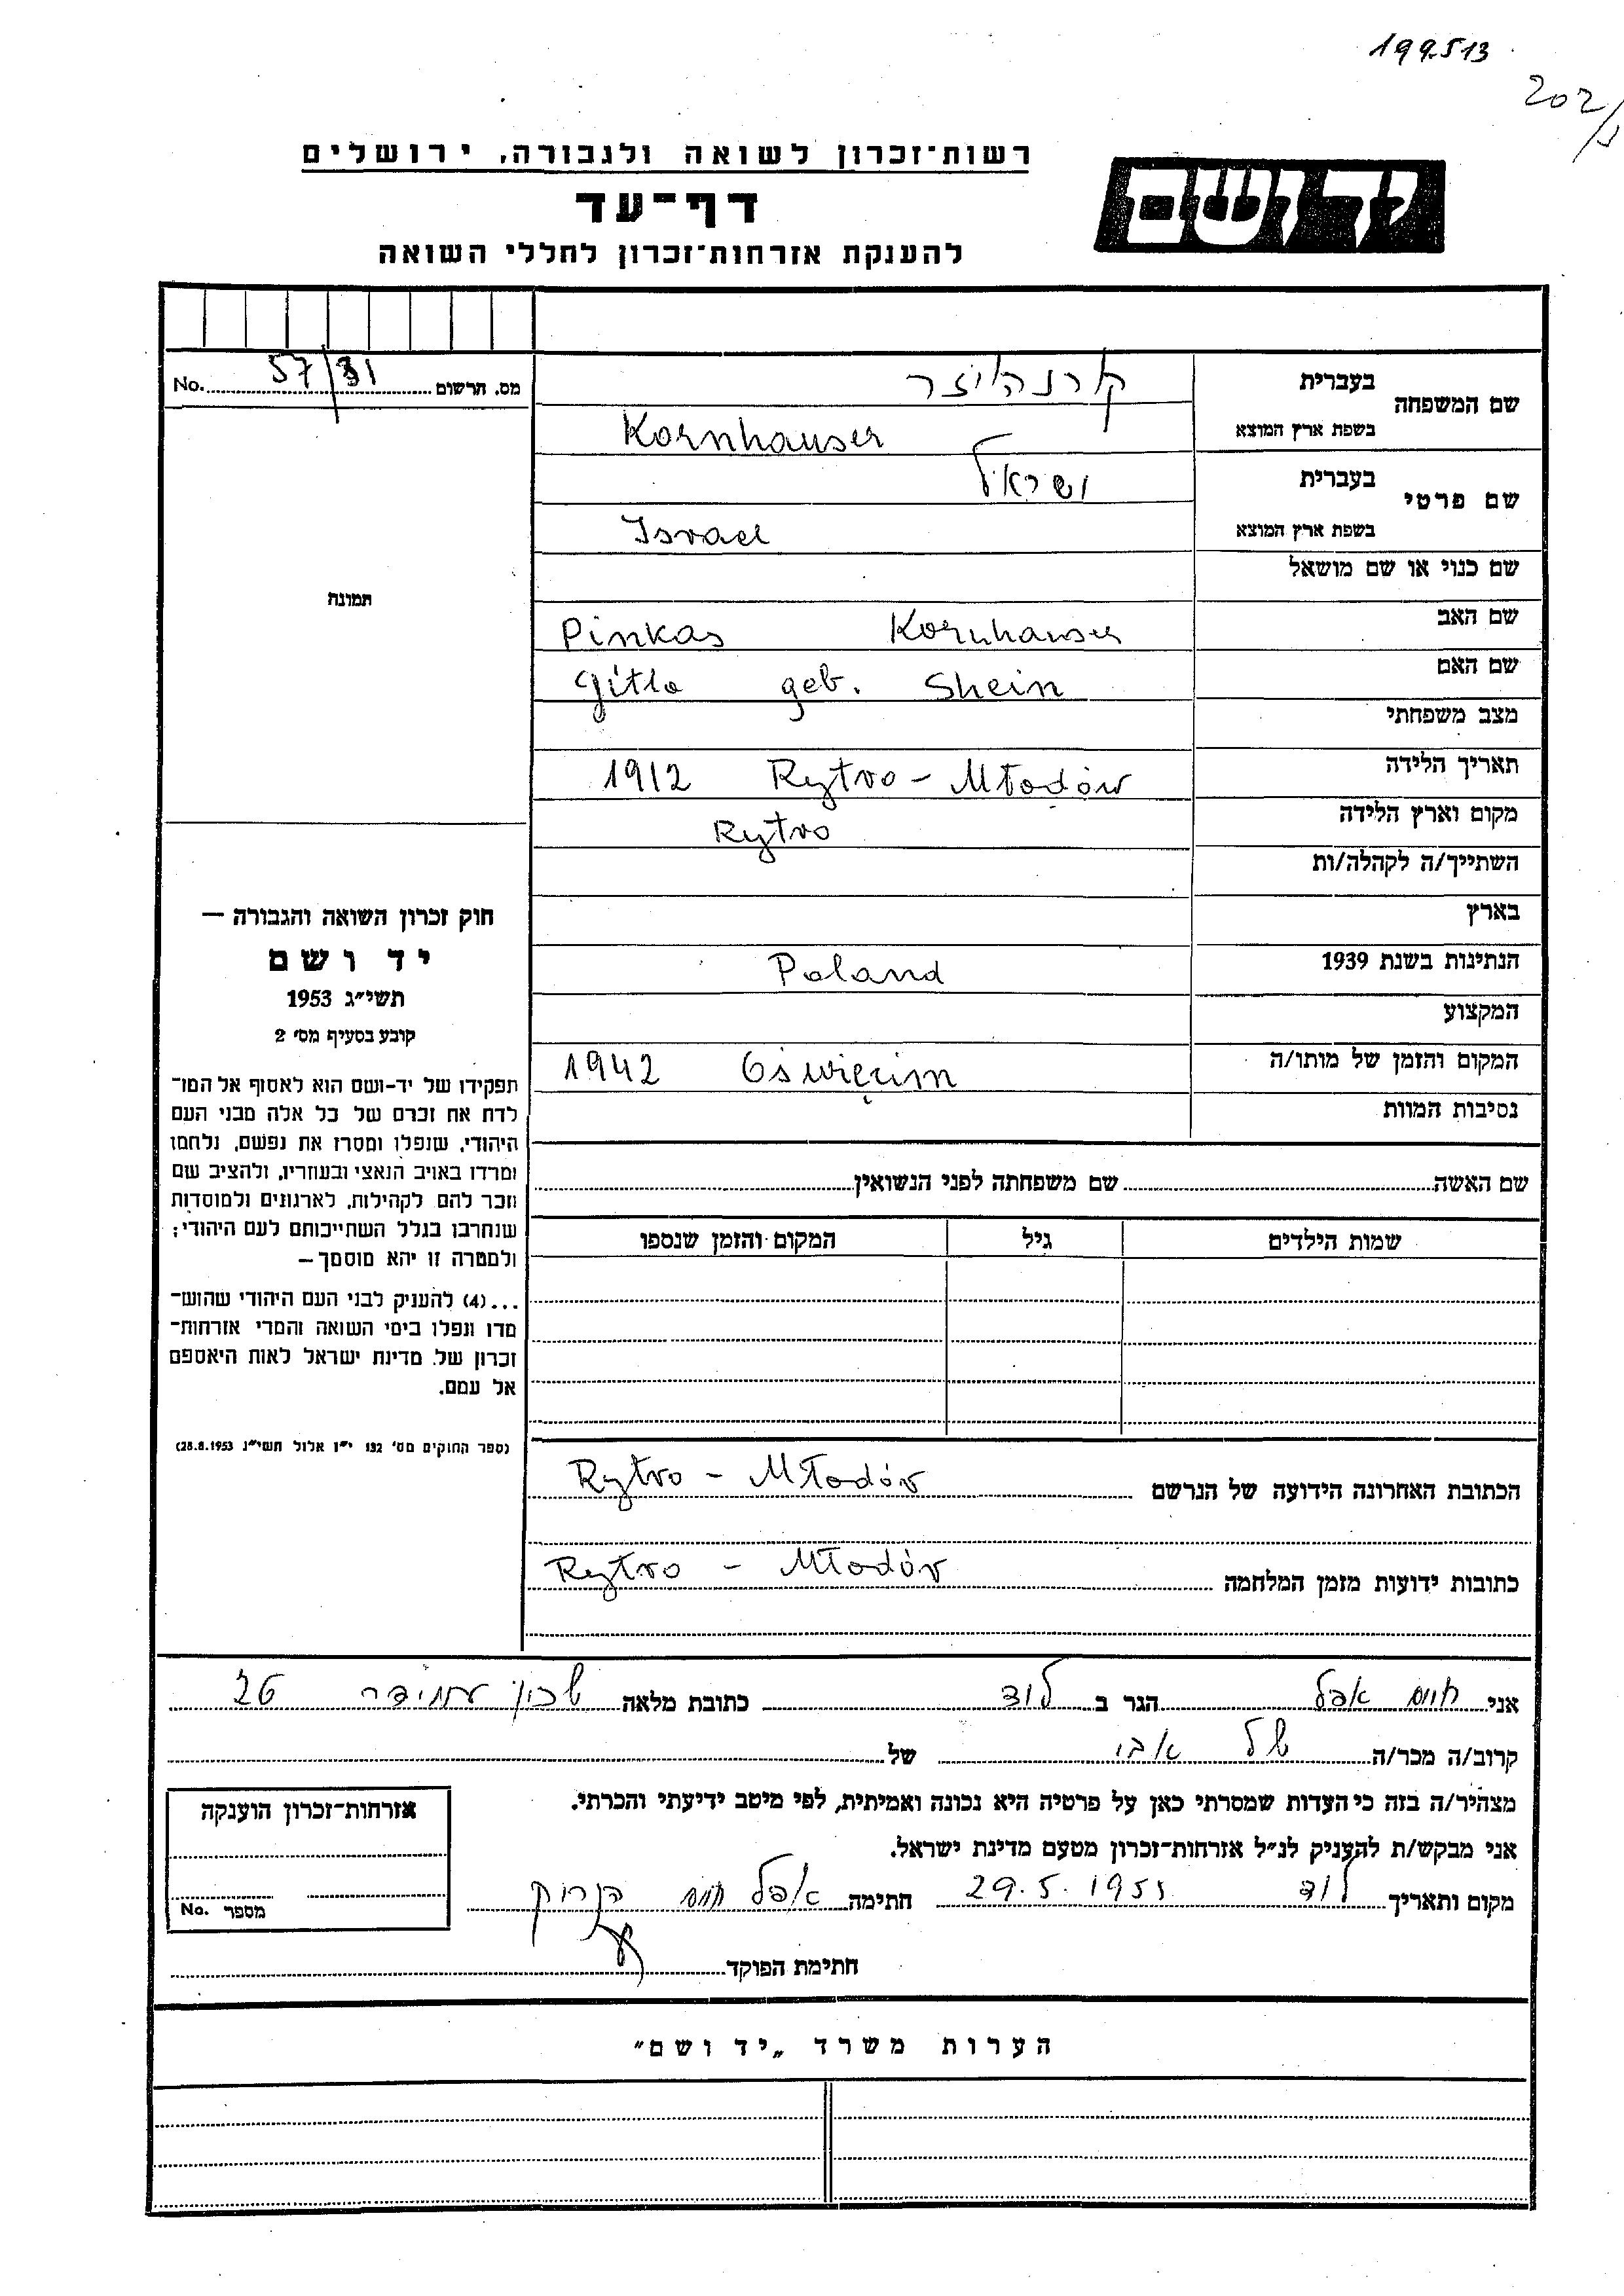 199513
202/
רשות־זכרון לשואה ולגבורה, ירושלים
דף־עד
להענקת אזרחות־זכרון לחללי השואה
יד ושם
מס. תרשום 57/31 No.
שם המשפחה
בעברית קורנהויזר
בשפת ארץ המוצא Kornhauser
שם פרטי
בעברית ישראל
בשפת ארץ המוצא Israel
שם כנוי או שם מושאל
שם האב Pinkas Kornhauser
שם האם Gitla geb. Shein
מצב משפחתי
תאריך הלידה 1912 Rytro - Młodów
מקום וארץ הלידה Rytro
השתייך/ה לקהלה/ות
בארץ
הנתינות בשנת 1939 Poland
המקצוע
המקום והזמן של מותו/ה 1942 Oświęcim
נסיבות המוות
תמונה
חוק זכרון השואה והגבורה —
יד ושם
תשי״ג 1953
קובע בסעיף מס׳ 2
תפקידו של יד-ושם הוא לאסוף אל המו־
לדת את זכרם של כל אלה מבני העם
היהודי, שנפלו ומסרו את נפשם, נלחמו
ומרדו באויב הנאצי ובעוזריו, ולהציב שם
וזכר להם לקהילות, לארגונים ולמוסדות
שנחרבו בגלל השתייכותם לעם היהודי;
ולמטרה זו יהא מוסמך —
...(4) להעניק לבני העם היהודי שהוש־
מדו ונפלו בימי השואה והמרי אזרחות־
זכרון של מדינת ישראל לאות היאספם
אל עמם.
(ספר החוקים מס׳ 132 י״ז אלול תשי״ג 28.8.1953)
שם האשה שם משפחתה לפני הנשואין
שמות הילדים גיל המקום והזמן שנספו
הכתובת האחרונה הידועה של הנרשם Rytro - Młodów
כתובות ידועות מזמן המלחמה Rytro - Młodów
אני חיים אפל הגר ב לוד כתובת מלאה שכון עמידר 26
קרוב/ה מכר/ה של אבי של
מצהיר/ה בזה כי העדות שמסרתי כאן על פרטיה היא נכונה ואמיתית, לפי מיטב ידיעתי והכרתי.
אני מבקש/ת להעניק לנ״ל אזרחות־זכרון מטעם מדינת ישראל.
מקום ותאריך לוד 29.5.1955 חתימה אפל חיים
חתימת הפוקד
אזרחות־זכרון הוענקה
מספר No.
הערות משרד „יד ושם״